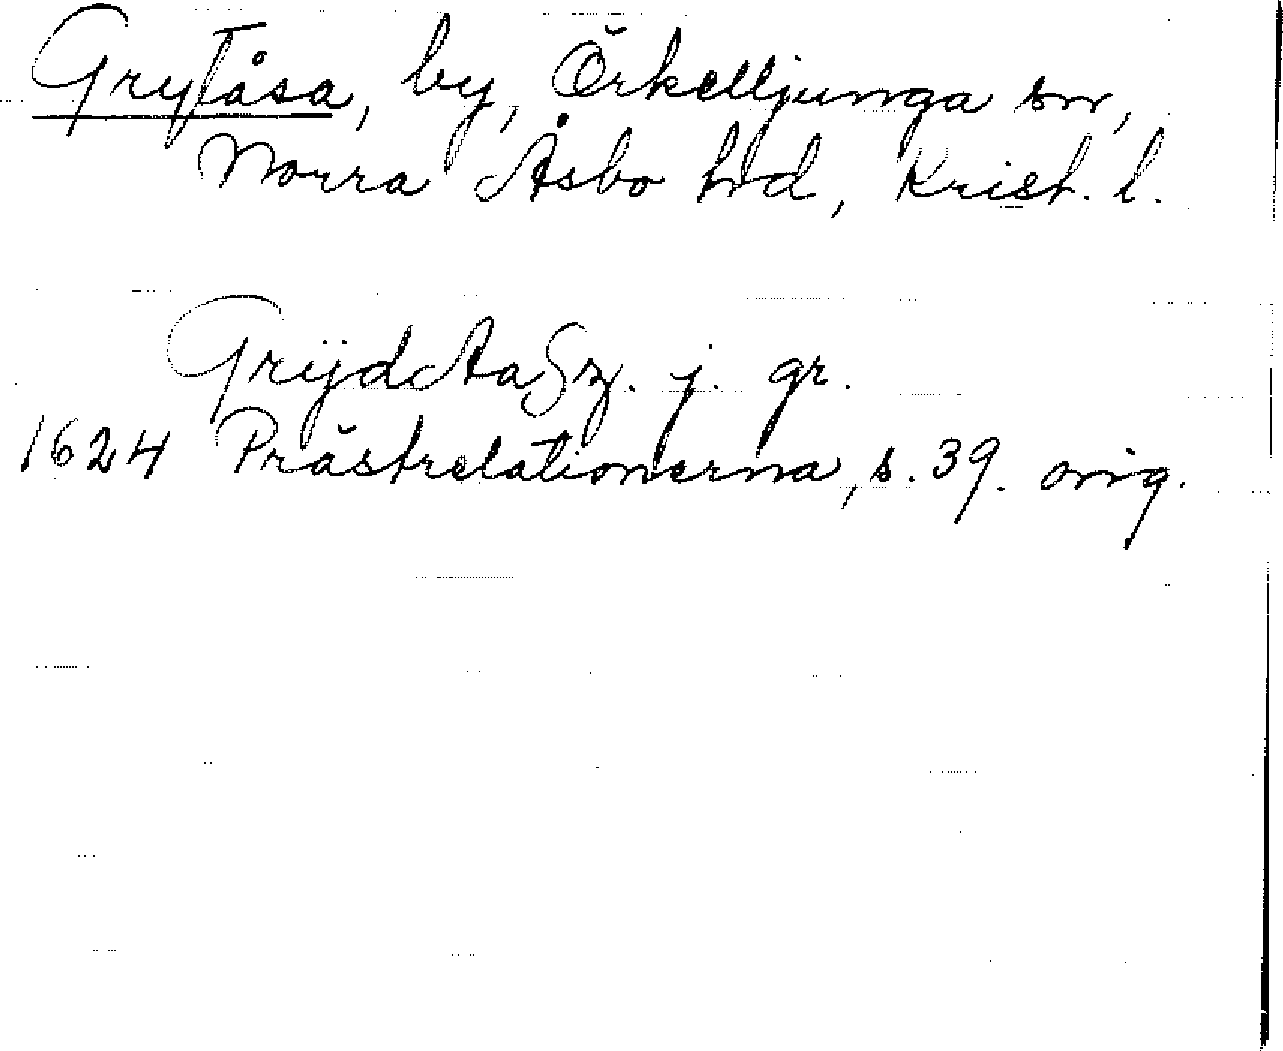 Grytåsa, by, Örkelljunga sn,
Norra Åsbo hrd, Krist. l.
Grÿd Aaſz. j. gr.
1624 Prästrelationerna, s. 39. orig.